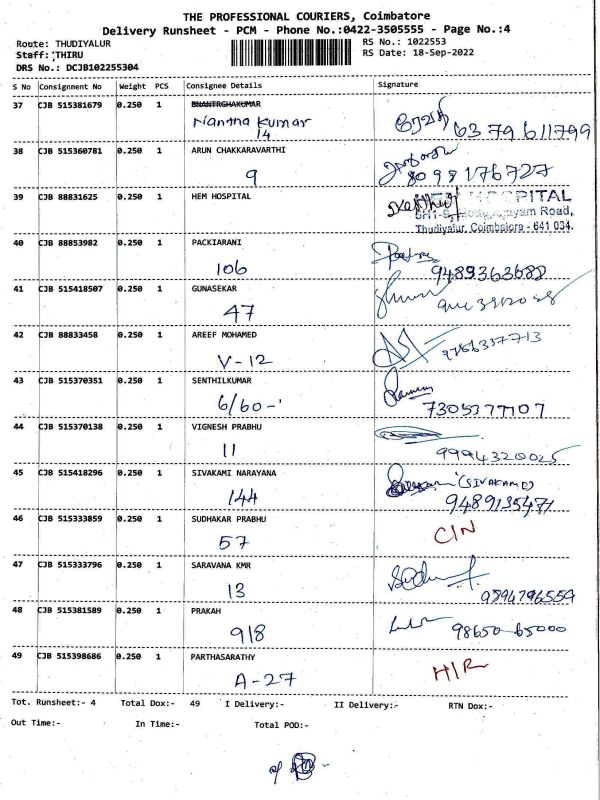 THE PROFESSIONAL COURIERS, Coimbatore
Delivery Runsheet - PCM - Phone No.:0422-3505555 - Page No.:4
Route: THUDIYALUR RS No.: 1022553
Staff: THIRU RS Date: 18-Sep-2022
DRS No.: DCJB102255304
S No Consignment No Weight PCS Consignee Details Signature
37 CJB 515381679 0.250 1
Nantha Kumar ரேவதி 63 79 611799
14
38 CJB 515360781 0.250 1 ARUN CHAKKARAVARTHI
9 8098176727
39 CJB 88831625 0.250 1 HEM HOSPITAL HOSPITAL
Road,
Thudiyalur, Coimbatore - 641 034.
40 CJB 88853982 0.250 1 PACKIARANI
106 9489363682
41 CJB 515418507 0.250 1 GUNASEKAR
47
42 CJB 88833458 0.250 1 AREEF MOHAMED
V-12 9786337713
43 CJB 515370351 0.250 1 SENTHILKUMAR
6/60 7305377107
44 CJB 515370138 0.250 1 VIGNESH PRABHU
11 9994320025
45 CJB 515418296 0.250 1 SIVAKAMI NARAYANA (SIVAKAMI)
144 9489135471
46 CJB 515333859 0.250 1 SUDHAKAR PRABHU
57 C/N
47 CJB 515333796 0.250 1 SARAVANA KMR
13 9894796559
48 CJB 515381589 0.250 1 PRAKAH
918 98650-65000
49 CJB 515398686 0.250 1 PARTHASARATHY
A-27 H/R
Tot. Runsheet:- 4 Total Dox:- 49 I Delivery:- II Delivery:- RTN Dox:-
Out Time:- In Time:- Total POD:-